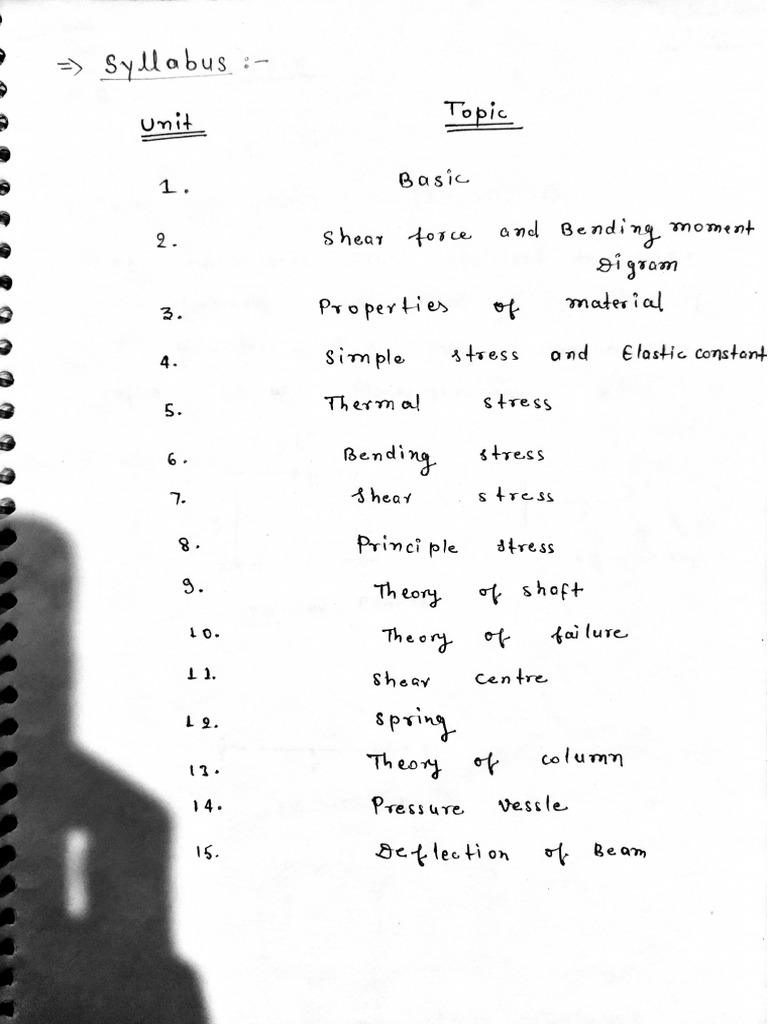 ⇒ Syllabus :-
Unit Topic
1. Basic
2. Shear force and Bending moment
Digram
3. Properties of material
4. Simple stress and Elastic constant
5. Thermal stress
6. Bending stress
7. Shear stress
8. Principle stress
9. Theory of shaft
10. Theory of failure
11. Shear centre
12. Spring
13. Theory of column
14. Pressure vessle
15. Deflection of Beam